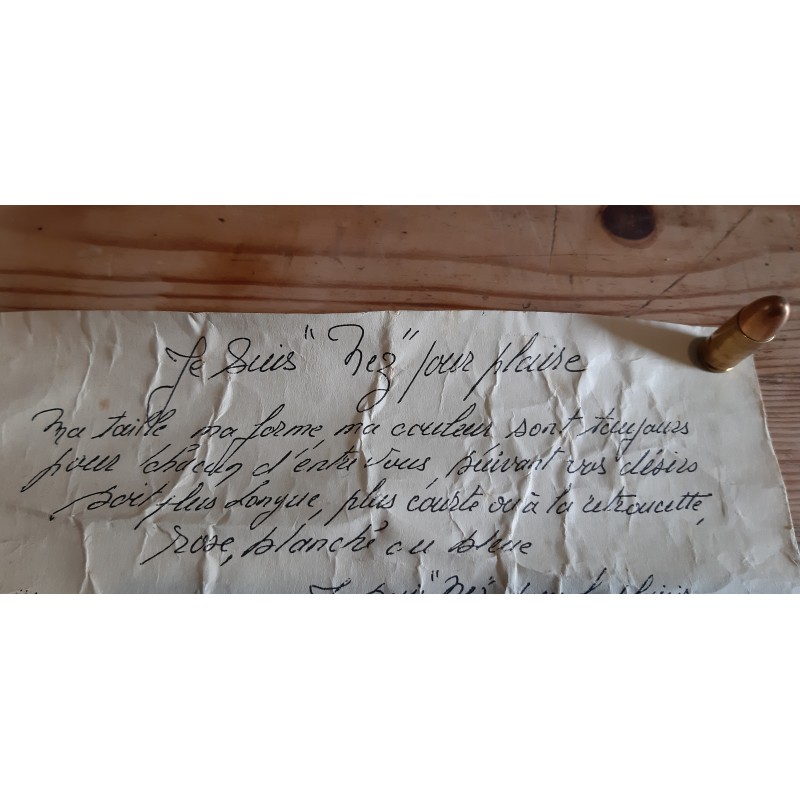 Je suis "Nez" pour plaire
Ma taille ma forme, ma couleur sont toujours
pour chacun d'entre vous suivant vos désirs
soit plus longue, plus courte ou à la retroucette,
rose, blanche ou bleue
Je suis "Nez" pour